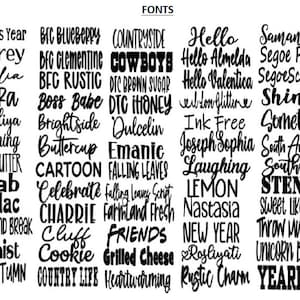 FONTS
s Year
BFC BLUEBERRY
BFC Clementine
BFC RUSTIC
Boss Babe
Brightside
Buttercup
CARTOON
Celebrate
CHARRIE
Cluff
Cookie
COUNTRY LIFE
COUNTRYSIDE
COWBOYS
DTC BROWN SUGAR
DTC HONEY
Dulcelin
Emanic
FALLING LEAVES
Falling Leaves Script
Farmland Fresh
FRIENDS
Grilled Cheese
Heartwarming
Hello
Hello Almeda
Hello Valentica
Ink Free
Joseph Sophia
Laughing
LEMON
Nastasia
NEW YEAR
Rosliyati
Rustic Charm
Saman
Segoe
Segoe
Shin
Somet
South
South
STEN
SWEET LIK
THROW M
UNICORN
YEAR